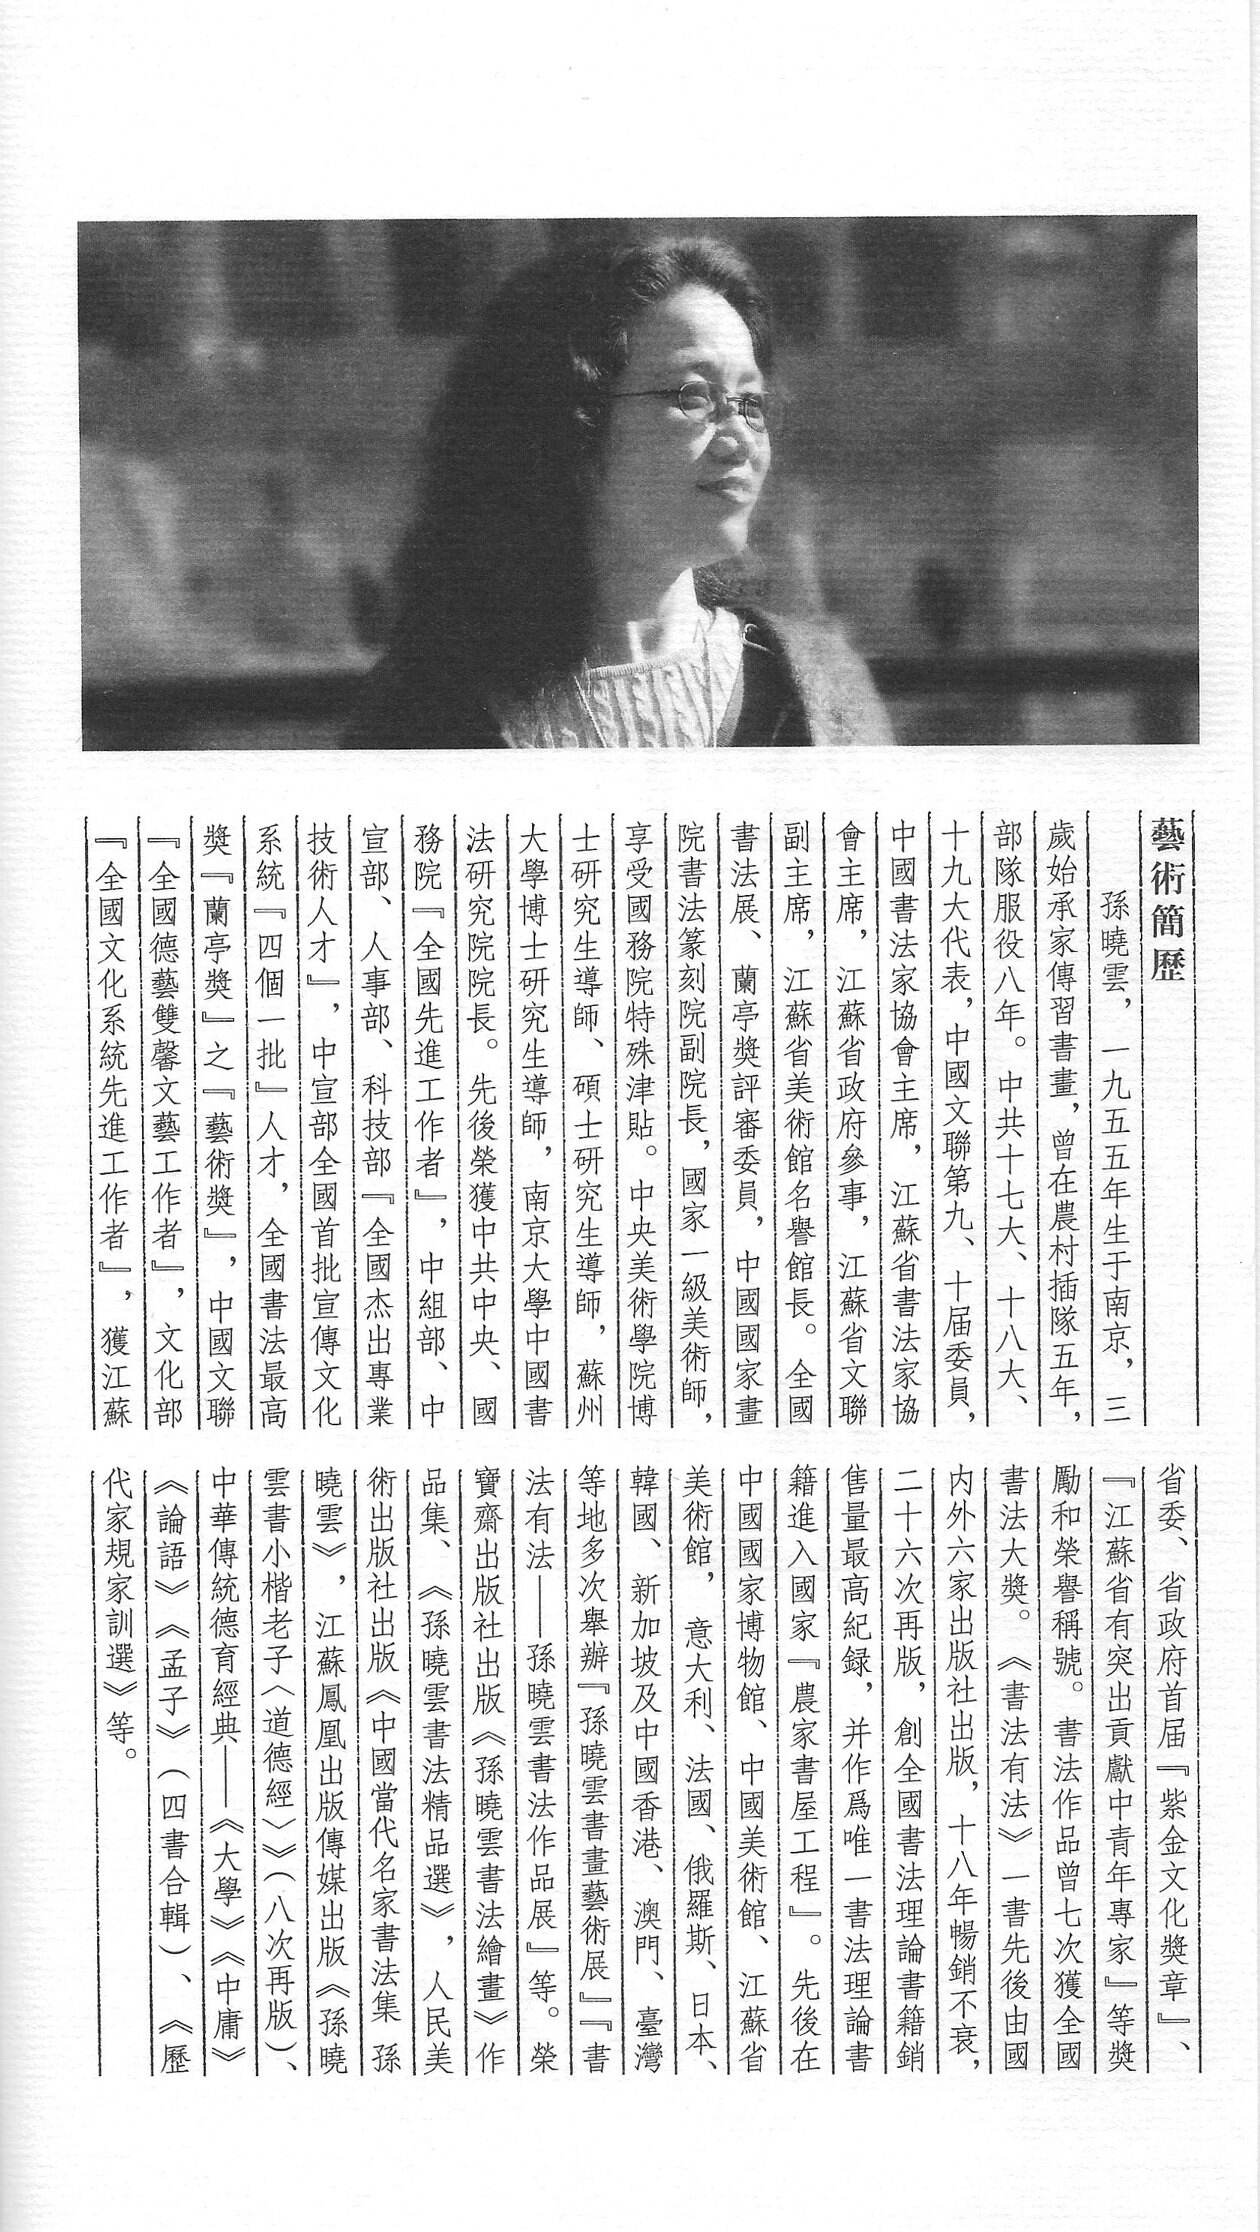 藝術簡歷
孫曉雲，一九五五年生于南京，三
歲始承家傳習書畫，曾在農村插隊五年，
部隊服役八年。中共十七大、十八大、
十九大代表，中國文聯第九、十屆委員，
中國書法家協會主席，江蘇省書法家協
會主席，江蘇省政府參事，江蘇省文聯
副主席，江蘇省美術館名譽館長。全國
書法展、蘭亭獎評審委員，中國國家畫
院書法篆刻院副院長，國家一級美術師，
享受國務院特殊津貼。中央美術學院博
士研究生導師、碩士研究生導師，蘇州
大學博士研究生導師，南京大學中國書
法研究院院長。先後榮獲中共中央、國
務院『全國先進工作者』，中組部、中
宣部、人事部、科技部『全國杰出專業
技術人才』，中宣部全國首批宣傳文化
系統『四個一批』人才，全國書法最高
獎『蘭亭獎』之『藝術獎』，中國文聯
『全國德藝雙馨文藝工作者』，文化部
『全國文化系統先進工作者』，獲江蘇
省委、省政府首届『紫金文化獎章』、
『江蘇省有突出貢獻中青年專家』等獎
勵和榮譽稱號。書法作品曾七次獲全國
書法大獎。《書法有法》一書先後由國
内外六家出版社出版，十八年暢銷不衰，
二十六次再版，創全國書法理論書籍銷
售量最高紀録，并作爲唯一書法理論書
籍進入國家『農家書屋工程』。先後在
中國國家博物館、中國美術館、江蘇省
美術館，意大利、法國、俄羅斯、日本、
韓國、新加坡及中國香港、澳門、臺灣
等地多次舉辦『孫曉雲書畫藝術展』『書
法有法——孫曉雲書法作品展』等。榮
寶齋出版社出版《孫曉雲書法繪畫》作
品集、《孫曉雲書法精品選》，人民美
術出版社出版《中國當代名家書法集 孫
曉雲》，江蘇鳳凰出版傳媒出版《孫曉
雲書小楷老子〈道德經〉》（八次再版）、
中華傳統德育經典——《大學》《中庸》
《論語》《孟子》（四書合輯）、《歷
代家規家訓選》等。